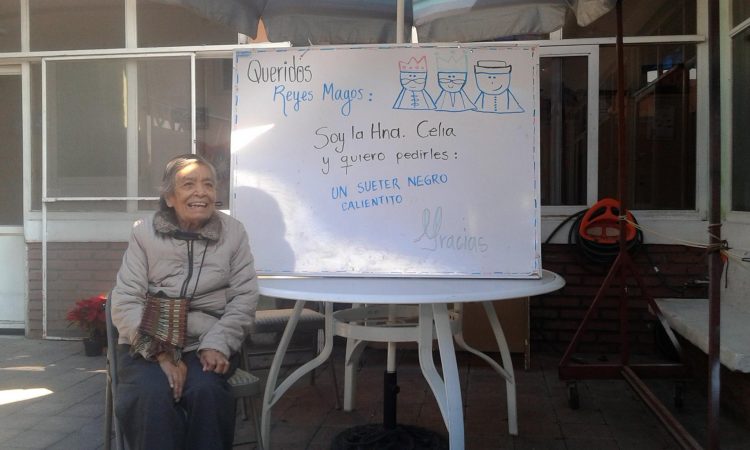 Queridos
Reyes Magos :
Soy la Hna. Celia
y quiero pedirles :
UN SUETER NEGRO
CALIENTITO
Gracias